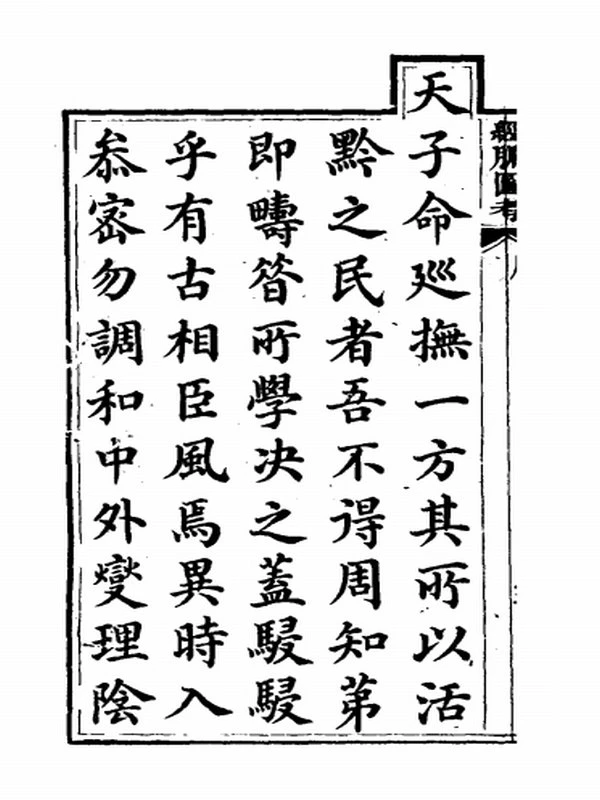 經脈圖考
天子命廵撫一方其所以活
黔之民者吾不得周知第
即疇昝所學决之蓋駸駸
乎有古相臣風焉異時入
叅密勿調和中外燮理陰